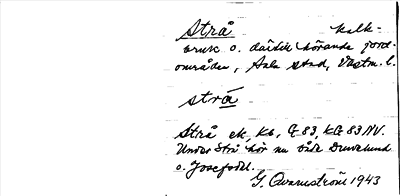 Strå kalk-
bruk o. därtill hörande jord-
områden, Sala stad, Västm. l.
strå
Strå ek, Kb, G 83, KG 83 NV.
Under Strå hör nu både
o. Josefsdal.
G. Qvarnström 1943